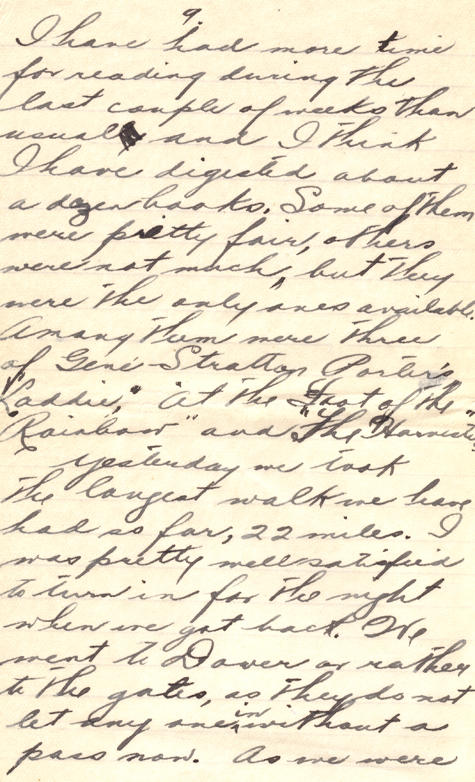 9.
I have had more time
for reading during the
last couple of weeks than
usual and I think
I have digested about
a dozen books. Some of them
were pretty fair, others
were not much, but they
were the only ones available.
Among them were three
of Gene Stratton Porter's
"Laddie," "At the Foot of the
Rainbow" and "The Harvester"
Yesterday we took
the longest walk we have
had so far, 22 miles. I
was pretty well satisfied
to turn in for the night
when we got back. We
went to Dover or rather
to the gates, as they do not
let any one in without a
pass now. As we were